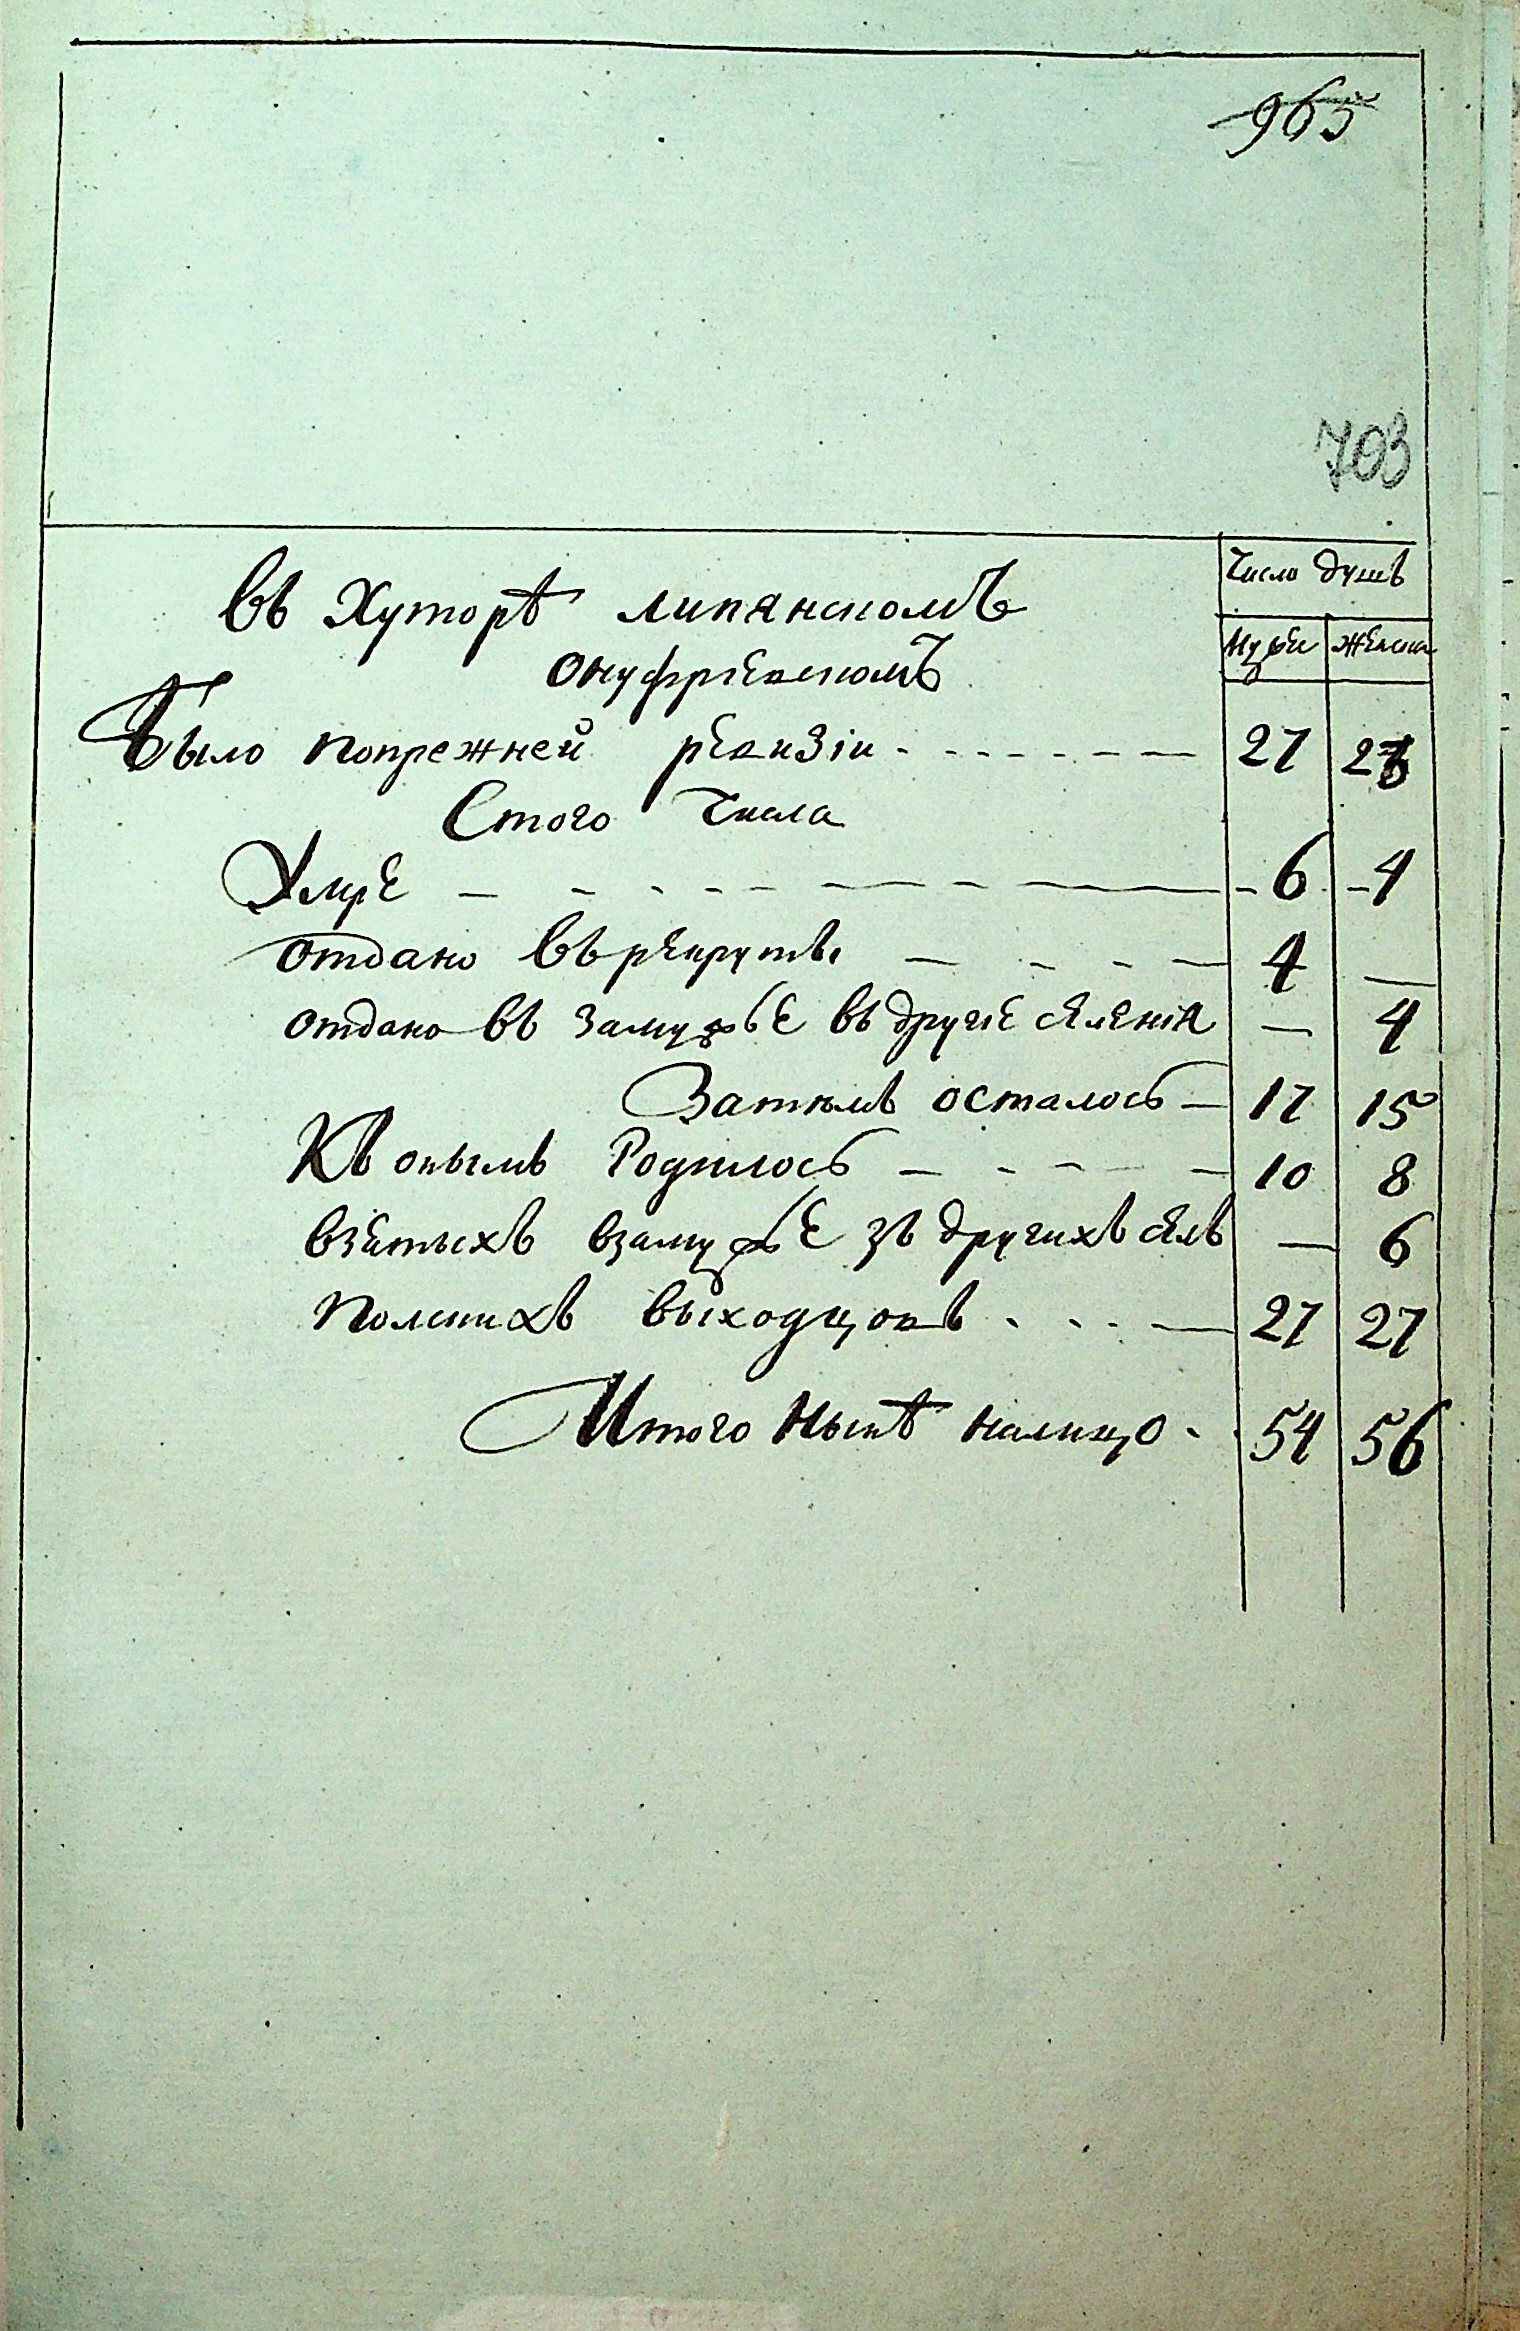 965
703
Число душъ
въ Хуторѣ липянскомъ
мужеск женска
онуфріевскомъ
Было попрежней ревизіи - - - - - - - 27 23
Стого числа
Умре - - - - - - - - - 6 - 4
отдано въ рекруты - - - - 4 —
отдано въ замужье въ другіе селенія — 4
Затемъ осталось - 17 15
Къ онымъ Родилось - - - - - 10 8
взятыхъ взамужье зъ другихъ селъ — 6
Полскихъ выходцовъ - - - - 27 27
Итого нынѣ налицо - - 54 56